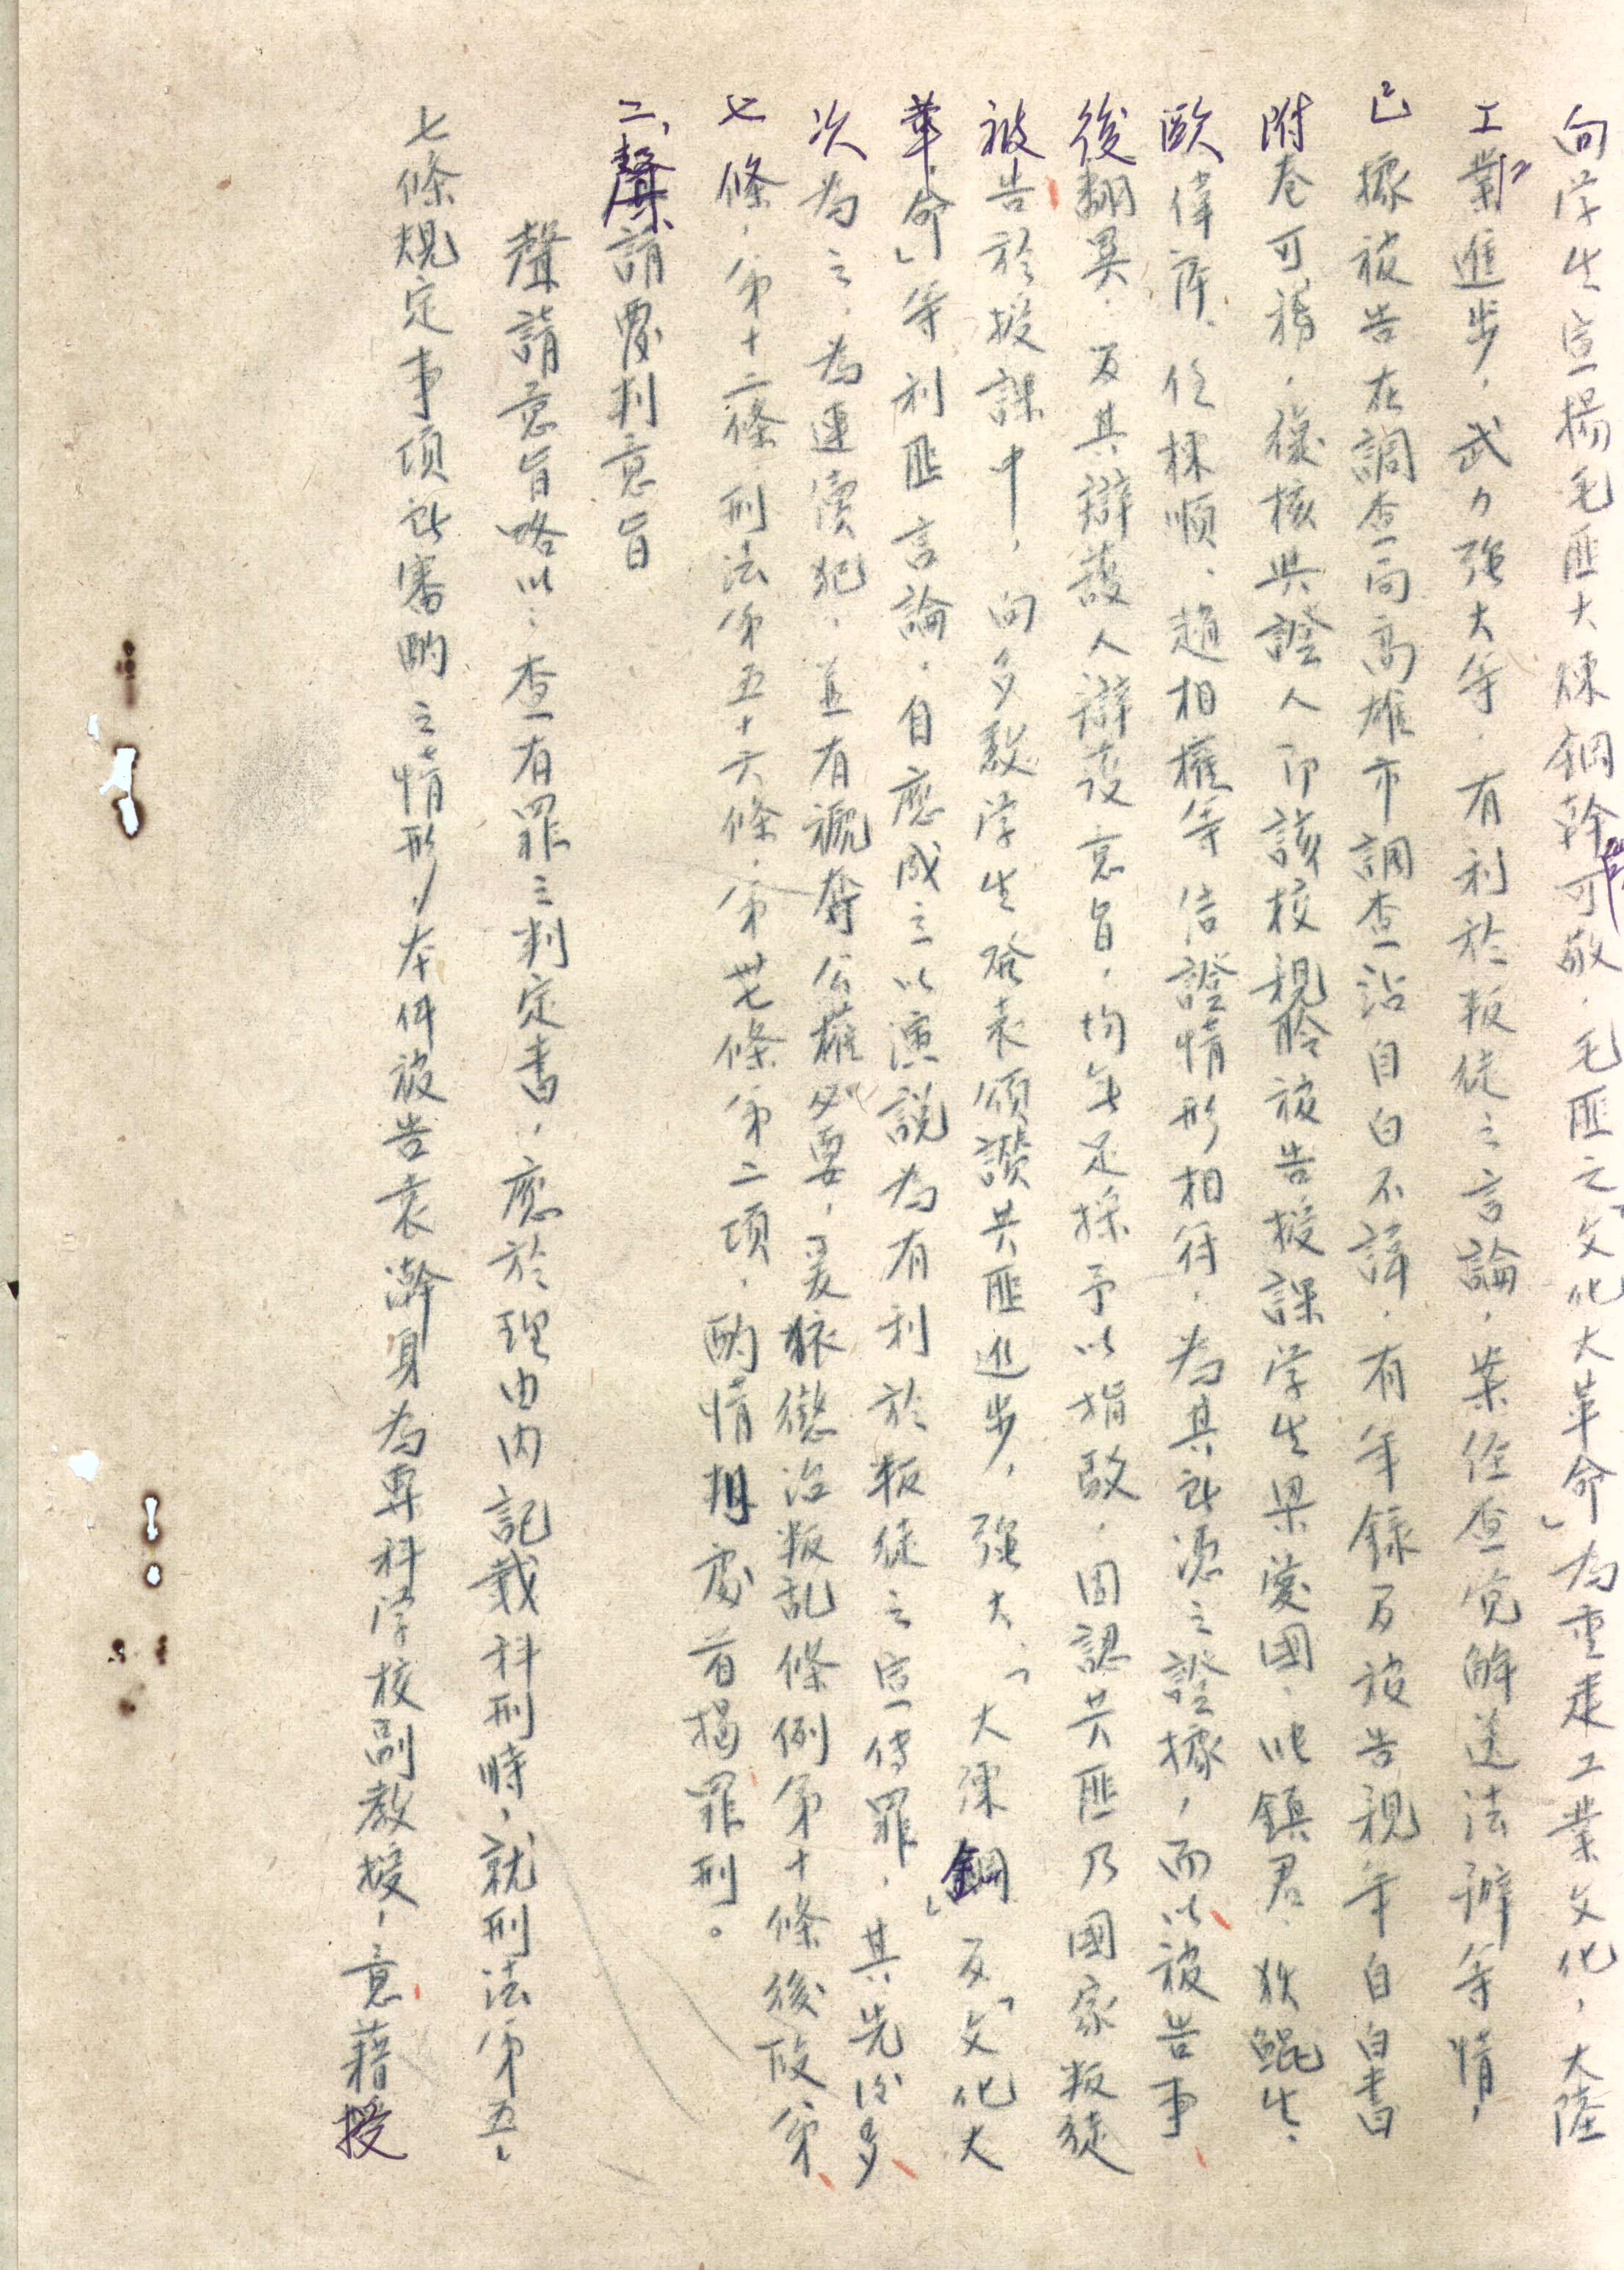 向学生宣揚毛匪大煉鋼幹可敬，毛匪之「文化大革命」為重建工業文化，大陸
工業進步，武力强大等，有利於叛徒之言論，案经查覚解送法辦等情，
已據被告在調查局高雄市調查站自白不諱，有筆錄及被告親筆自白書
附卷可稽，復核與證人即該校親聆被告授課学生梁愛國、沈鎮君、狄鯤生、
歐偉萍、任棟順、趙相權等結證情形相符，為其所憑之證據，而以被告事
後翻異，及其辯護人辯護意旨，均無足採予以指駁，因認共匪乃國家叛徒
被告於授課中，向多数学生發表頌讚共匪進步，强大、「大煉鋼」及「文化大
革命」等利匪言論，自應成立以演説為有利於叛徒之宣傳罪，其先後多
次為之，為連續犯，並有褫奪公權必要，爰依懲治叛乱條例第十條後段第
七條，第十二條，刑法第五十六條，第卅七條第二項，酌情判處首揭罪刑。
二、聲請覆判意旨
聲請意旨略以：查有罪之判定書，應於理由内記載科刑時，就刑法第五、
七條規定事項所審酌之情形，本件被告袁瀞身為專科学校副教授，意藉授